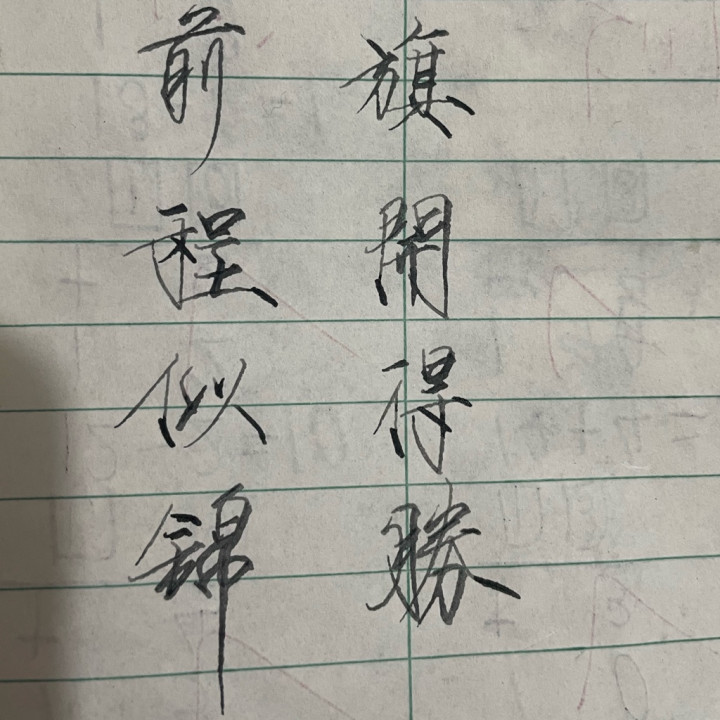 旗開得勝
前程似錦